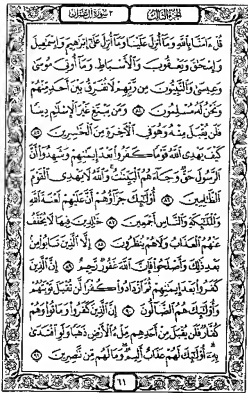 الجزء الثالث ٣ سورة آل عمران
قُلْ ءَامَنَّا بِٱللَّهِ وَمَآ أُنزِلَ عَلَيْنَا وَمَآ أُنزِلَ عَلَىٰٓ إِبْرَٰهِيمَ وَإِسْمَٰعِيلَ
وَإِسْحَٰقَ وَيَعْقُوبَ وَٱلْأَسْبَاطِ وَمَآ أُوتِىَ مُوسَىٰ
وَعِيسَىٰ وَٱلنَّبِيُّونَ مِن رَّبِّهِمْ لَا نُفَرِّقُ بَيْنَ أَحَدٍ مِّنْهُمْ
وَنَحْنُ لَهُۥ مُسْلِمُونَ ٨٤ وَمَن يَبْتَغِ غَيْرَ ٱلْإِسْلَٰمِ دِينًا
فَلَن يُقْبَلَ مِنْهُ وَهُوَ فِى ٱلْءَاخِرَةِ مِنَ ٱلْخَٰسِرِينَ ٨٥
كَيْفَ يَهْدِى ٱللَّهُ قَوْمًا كَفَرُوا۟ بَعْدَ إِيمَٰنِهِمْ وَشَهِدُوٓا۟ أَنَّ
ٱلرَّسُولَ حَقٌّ وَجَآءَهُمُ ٱلْبَيِّنَٰتُ وَٱللَّهُ لَا يَهْدِى ٱلْقَوْمَ
ٱلظَّٰلِمِينَ ٨٦ أُو۟لَٰٓئِكَ جَزَآؤُهُمْ أَنَّ عَلَيْهِمْ لَعْنَةَ ٱللَّهِ
وَٱلْمَلَٰٓئِكَةِ وَٱلنَّاسِ أَجْمَعِينَ ٨٧ خَٰلِدِينَ فِيهَا لَا يُخَفَّفُ
عَنْهُمُ ٱلْعَذَابُ وَلَا هُمْ يُنظَرُونَ ٨٨ إِلَّا ٱلَّذِينَ تَابُوا۟ مِنۢ
بَعْدِ ذَٰلِكَ وَأَصْلَحُوا۟ فَإِنَّ ٱللَّهَ غَفُورٌ رَّحِيمٌ ٨٩ إِنَّ ٱلَّذِينَ
كَفَرُوا۟ بَعْدَ إِيمَٰنِهِمْ ثُمَّ ٱزْدَادُوا۟ كُفْرًا لَّن تُقْبَلَ تَوْبَتُهُمْ
وَأُو۟لَٰٓئِكَ هُمُ ٱلضَّآلُّونَ ٩٠ إِنَّ ٱلَّذِينَ كَفَرُوا۟ وَمَاتُوا۟ وَهُمْ
كُفَّارٌ فَلَن يُقْبَلَ مِنْ أَحَدِهِم مِّلْءُ ٱلْأَرْضِ ذَهَبًا وَلَوِ ٱفْتَدَىٰ
بِهِۦٓ أُو۟لَٰٓئِكَ لَهُمْ عَذَابٌ أَلِيمٌ وَمَا لَهُم مِّن نَّٰصِرِينَ ٩١
٦١